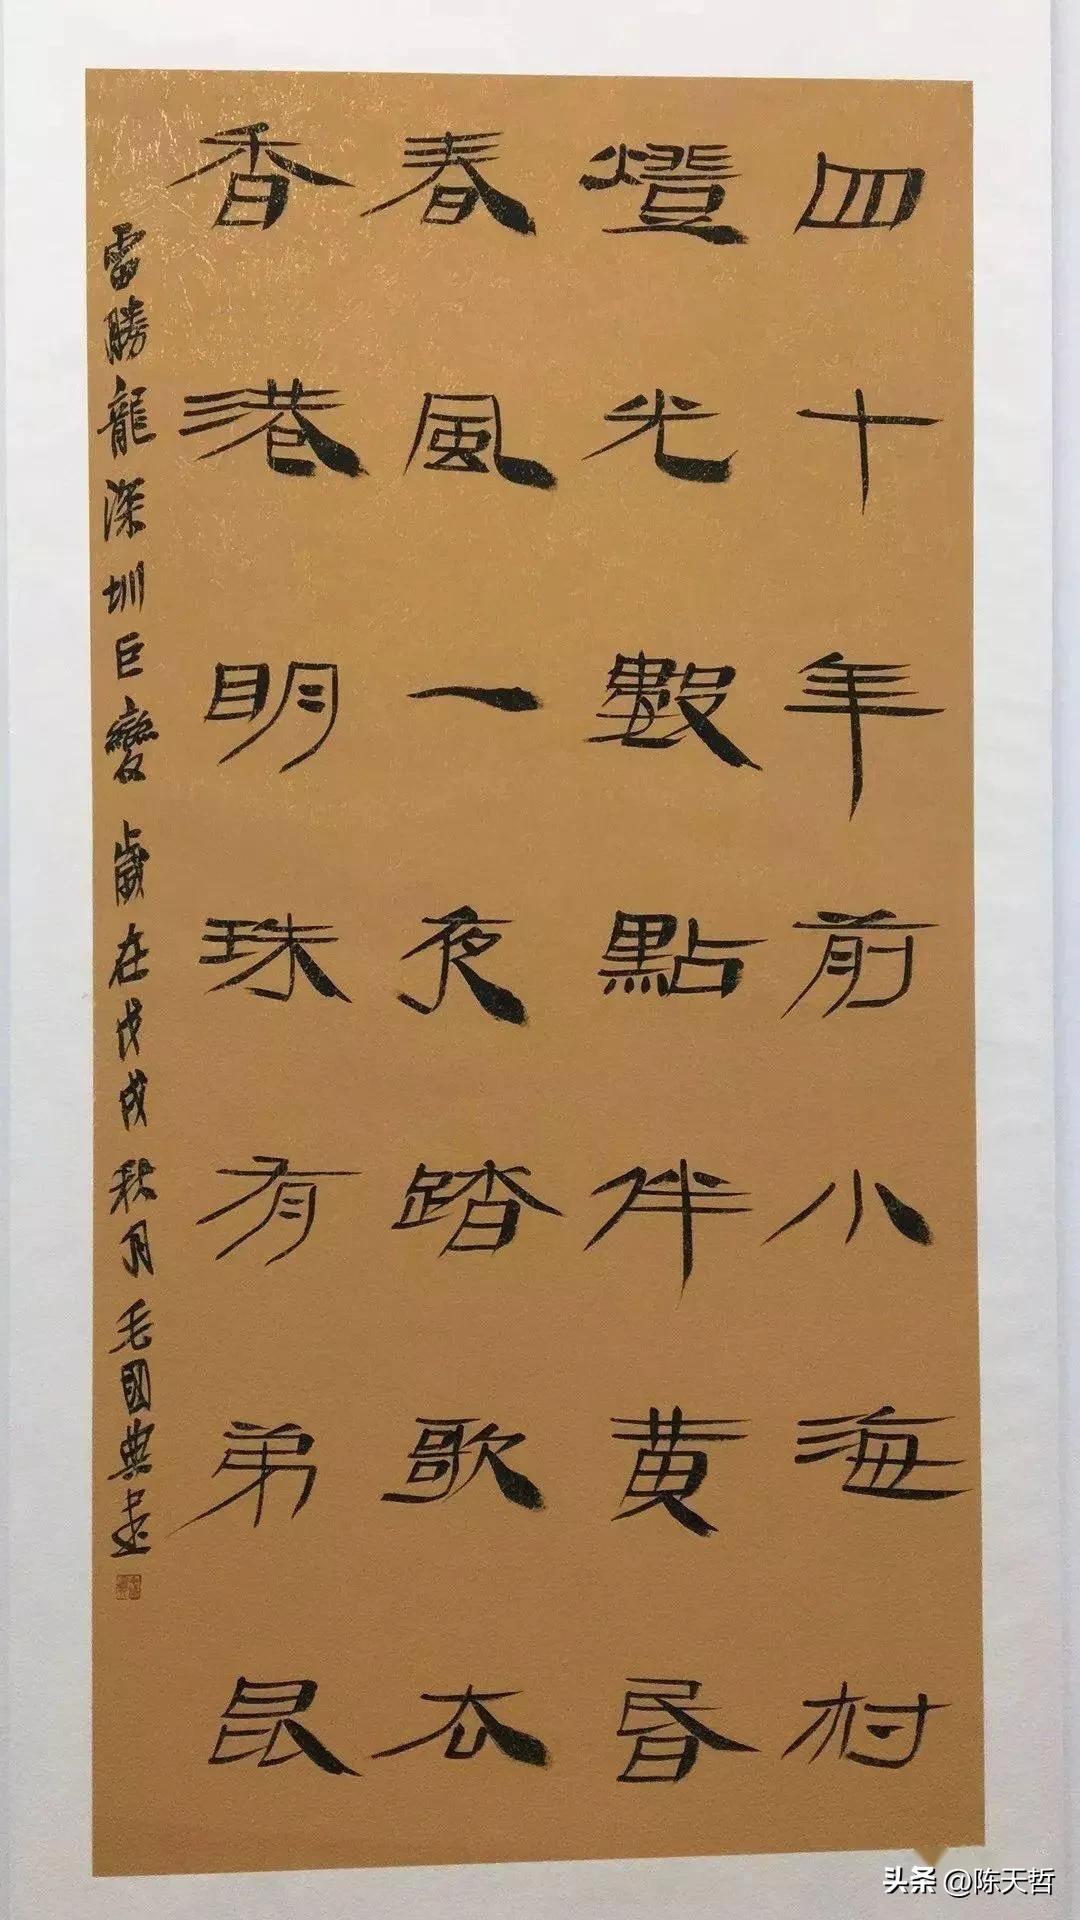 四十年前小海村
燈光數點伴黃昏
春風一夜踏歌去
香港明珠有弟昆
雷勝龍深圳巨變 歲在戊戌秋月毛國典書
头条 @陈天哲